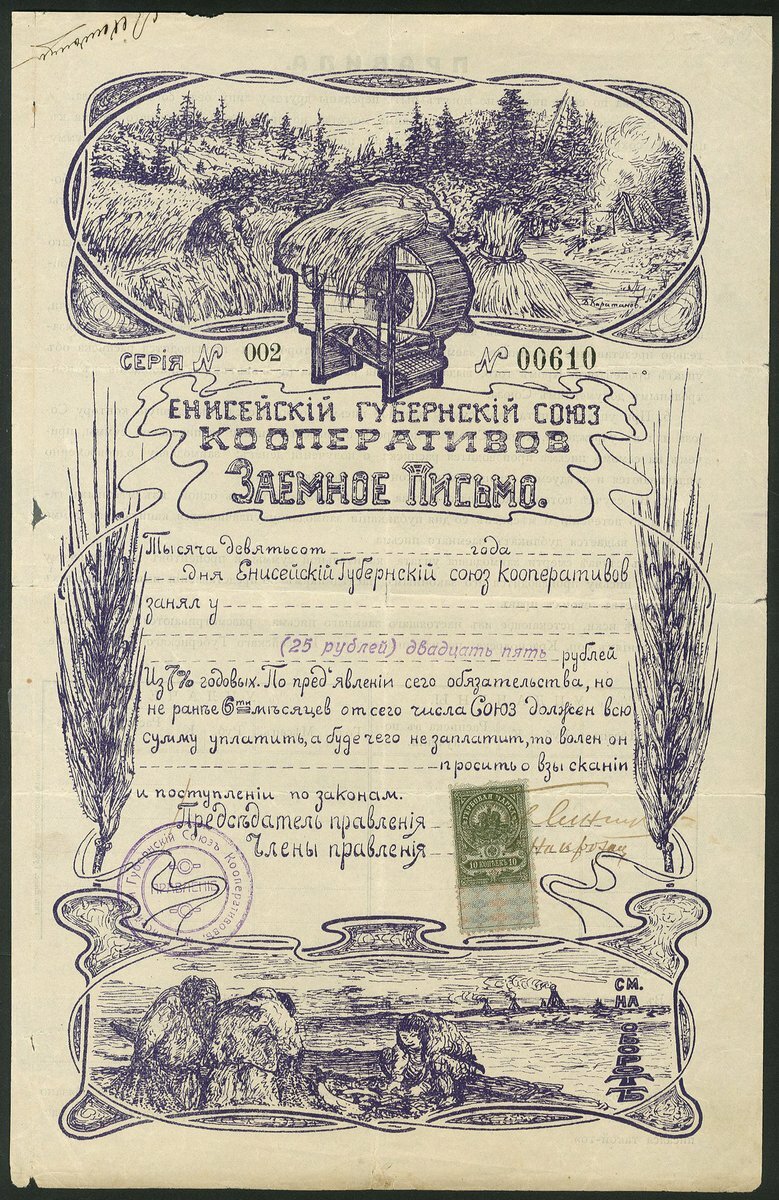 СЕРІЯ N 002 N 00610
ЕНИСЕЙСКІЙ ГУБЕРНСКІЙ СОЮЗ
КООПЕРАТИВОВ
ЗАЕМНОЕ ПИСЬМО.
Тысяча девятьсот года
дня Енисейскій Губернскій союз кооперативов
занял у
(25 рублей) двадцать пять рублей
Из 7% годовых. По предъявленіи сего обязательства, но
не ранѣе 6ти мѣсяцев от сего числа Союз должен всю
сумму уплатить, а буде чего не заплатит, то волен он
просить о взысканіи
и поступленіи по законам.
Предсѣдатель правленія
Члены правленія
10 КОПѢЕКЪ 10
Губернскій Союзъ Кооперативовъ
ПРАВЛЕНІЕ
СМ.
НА
ОБОРОТѢ